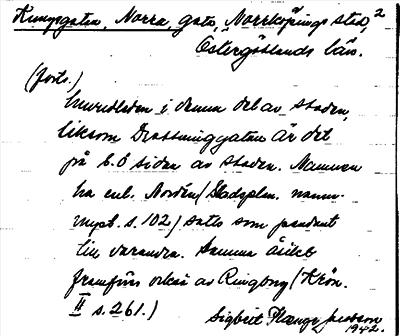 Kungsgatan, Norra, gata, Norrköpings stad, 2
Östergötlands län.
(forts.)
huvudleden i denna del av staden,
liksom Drottninggatan är det
på S.Ö sidan av staden. Namnen
ha enl. Nordén (Stadsplan. namn-
myst. s. 102) satts som pendant
till varandra. Samma åsikt
framförs också av Ringborg (Krön.
II s. 261.)
Sigbrit Plænge Jacobson
1942.